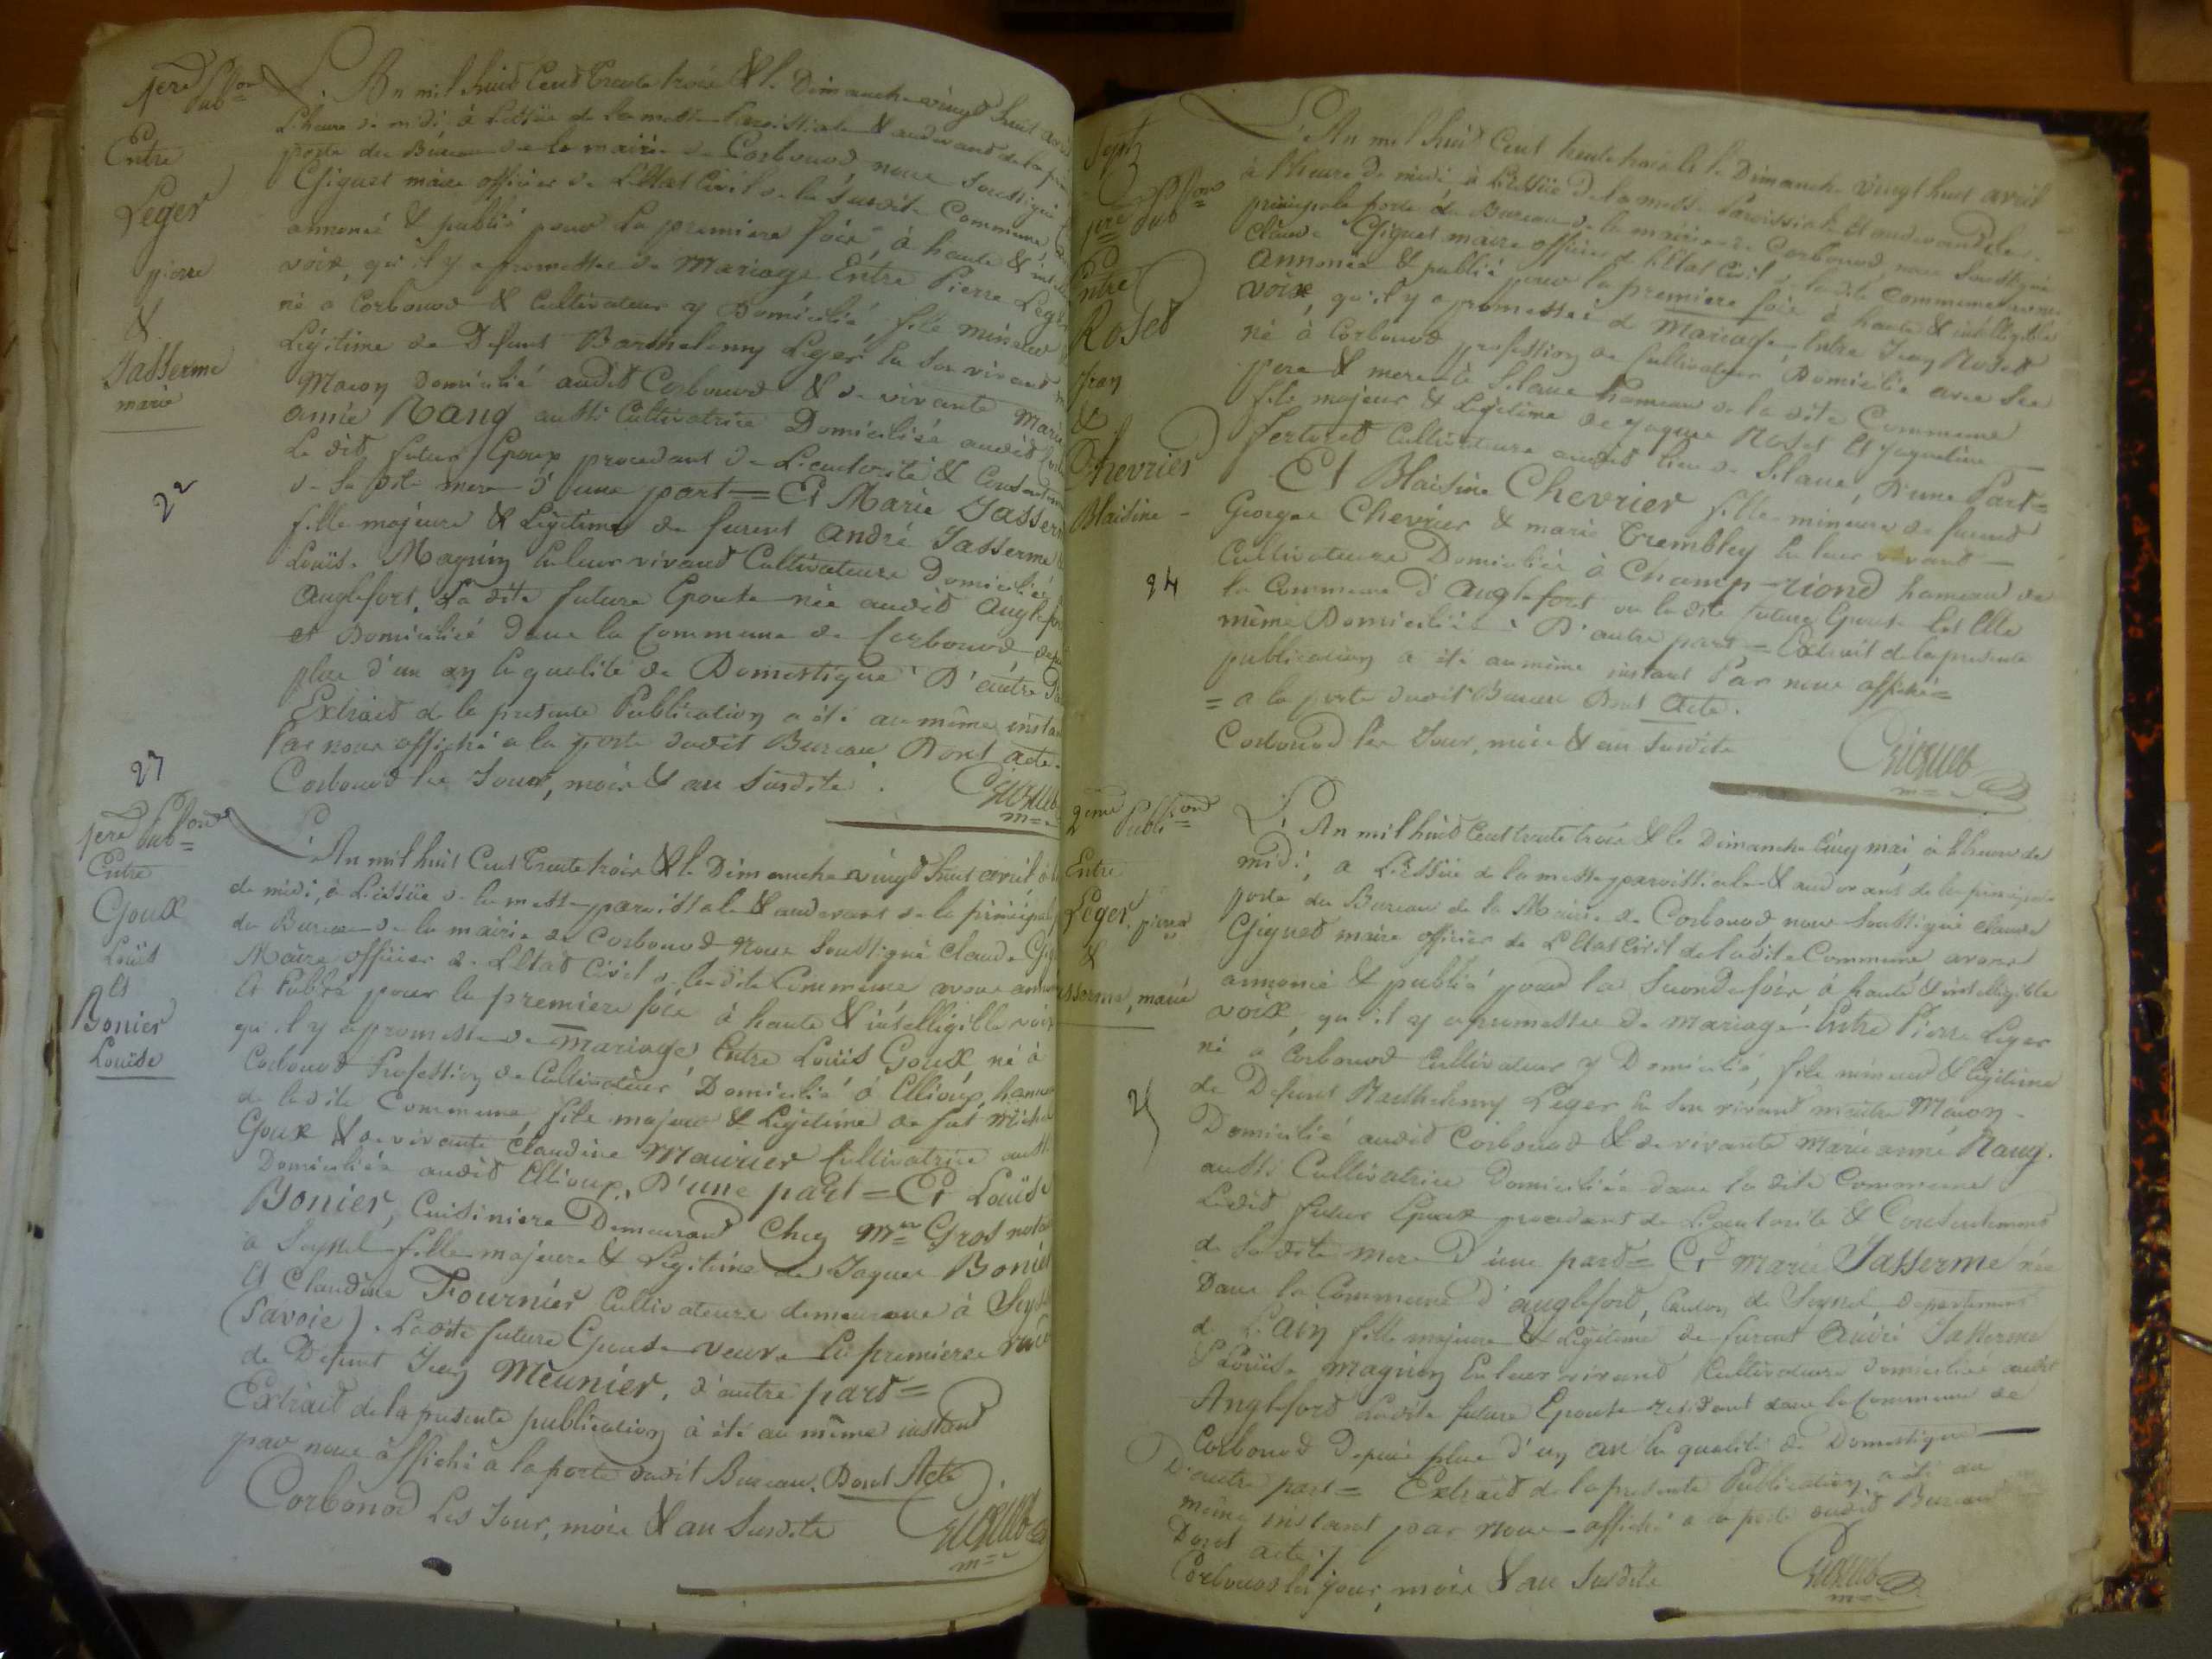 1ere Pub.on
Entre
Leger
pierre
&
Jasserme
marie
22
L'An mil huit Cent Trente trois & le Dimanche vingt huit avril
L'heure de midi à L'issüe de la messe Paroissiale & audevant de la
porte du Bureau de la mairie de Corbonod, nous Soussigné
Giguet maire officier de L'Etat Civil de la susdite Commune
annoncé & publié pour la premiere fois à haute &
voix, qu'il y a promesses de Mariage Entre Pierre Leger
né a Corbonod & Cultivateur y Domicilié, fils mineur
Légitime de Defunt Barthelemy Leger En son vivant
Maçon Domicilié audit Corbonod & de vivante Marie
anne Rang aussi Cultivatrice Domiciliée audit
Le dit futur Epoux procedant de L'autorité & Consentement
de sa dite mere d'une part = Et Marie Jasserme
fille majeure & Légitime de furent André Jasserme
Louise Magnin En leur vivant Cultivateurs Domiciliés
Anglefort. La dite future Epouse née audit Anglefort
et Domicilié dans la Commune de Corbonod depuis
plus d'un an En qualité de Domestique D'autre
Extrait de la presente Publication a été au même instant
Par nous affiché a la porte dudit Bureau Dont acte.
Corbonod les Jour, mois & an Susdits.
Giguet
m=
23
1ere Pub.on
Entre
Goux
Louis
Et
Bonier
Louise
L'An mil huit Cent Trente trois & le Dimanche vingt huit avril à
de midi, à L'issüe de la messe paroissiale & audevant de la principale
du Bureau de la mairie de Corbonod Nous Soussigné Claude
Maire officier de L'Etat Civil de ladite Commune avons
Et Publié pour la premiere fois à haute & intelligible voix
qu'il y a promesse de mariage Entre Louis Goux né à
Corbonod Profession de Cultivateur Domicilié à Ellioux hameau
de ladite Commune fils majeur & Légitime de fut Michel
Goux & de vivante Claudine Maurier Cultivatrice aussi
Domiciliée audit Ellioux, D'une part = Et Louise
Bonier, Cuisiniere Demeurant Chez Mr Gros notaire
à Seyssel fille majeure & Légitime de Jaques Bonier
Et Claudine Fournier Cultivateurs demeurans à Seyssel
(Savoie). Ladite future Epouse veuve En premieres
de Defunt Jean Meunier, d'autre part =
Extrait de la presente publication à été au même instant
par nous affiché à la porte dudit Bureau. Dont Acte
Corbonod Les Jour, mois & an Susdits
Giguet
m=
1ere Pub.on
Entre
Roset
Jean
&
Chevrier
Blaisine
24
L'An mil huit Cent trente trois & le Dimanche vingt huit avril
à L'heure de midi, à L'issüe de la messe Paroissiale Et audevant de la
principale porte du Bureau de la mairie de Corbonod, nous Soussigné
Claude Giguet maire officier de L'Etat Civil de ladite Commune avons
Annoncé & publié pour la premiere fois à haute & intelligible
voix, qu'il y a promesses de Mariage, Entre Jean Roset
né à Corbonod profession de Cultivateur Domicilié avec Ses
pere & mere à Silans hameau de la dite Commune
fils majeur & Légitime de Jaques Roset Et Jaqueline
Cultivateurs audit lieu de Silans, D'une Part =
Et Blaisine Chevrier fille mineure de furent
George Chevrier & marie Trembley En leur vivant
Cultivateurs Domiciliés à Champ-riond hameau de
la Commune d'Anglefort ou ladite future Epouse Est Elle
même Domiciliée D'autre part = Extrait de la presente
publication a été au même instant Par nous affiché =
= a la porte dudit Bureau Dont Acte.
Corbonod les Jour, mois & an Susdits
Giguet
m=
2eme Publi.on
Entre
Leger, pierre
&
Jasserme, marie
25
L'An mil huit Cent trente trois & le Dimanche Cinq mai, à L'heure de
midi, a L'issüe de la messe paroissiale & audevant de la principale
porte du Bureau de la Mairie de Corbonod, nous Soussigné Claude
Giguet maire officier de L'Etat Civil de ladite Commune avons
annoncé & publié pour la Seconde fois à haute & intelligible
voix, qu'il y a promesses de mariage Entre Pierre Leger
né a Corbonod Cultivateur y Domicilié, fils mineur & Légitime
de Defunt Barthelemy Leger En son vivant maître Maçon
Domicilié audit Corbonod & de vivante Marie anne Rang.
aussi Cultivatrice Domiciliée dans la dite Commune
Ledit futur Epoux procedant de L'autorité & Consentement
de Sa dite mere D'une part = Et Marie Jasserme née
Dans la Commune d'anglefort, Canton de Seyssel, Departement
de L'Ain fille majeure & Légitime de furent André Jasserme
& Louise Magnin En leur vivant Cultivateurs domiciliés audit
Anglefort Ladite future Epouse residant dans la Commune de
Corbonod Depuis plus d'un an En qualité de Domestique
D'autre part = Extrait de la presente Publication a été au
même instant par Nous affiché a la porte dudit Bureau
Dont acte ./.
Corbonod les jour, mois & an Susdits
Giguet
m=